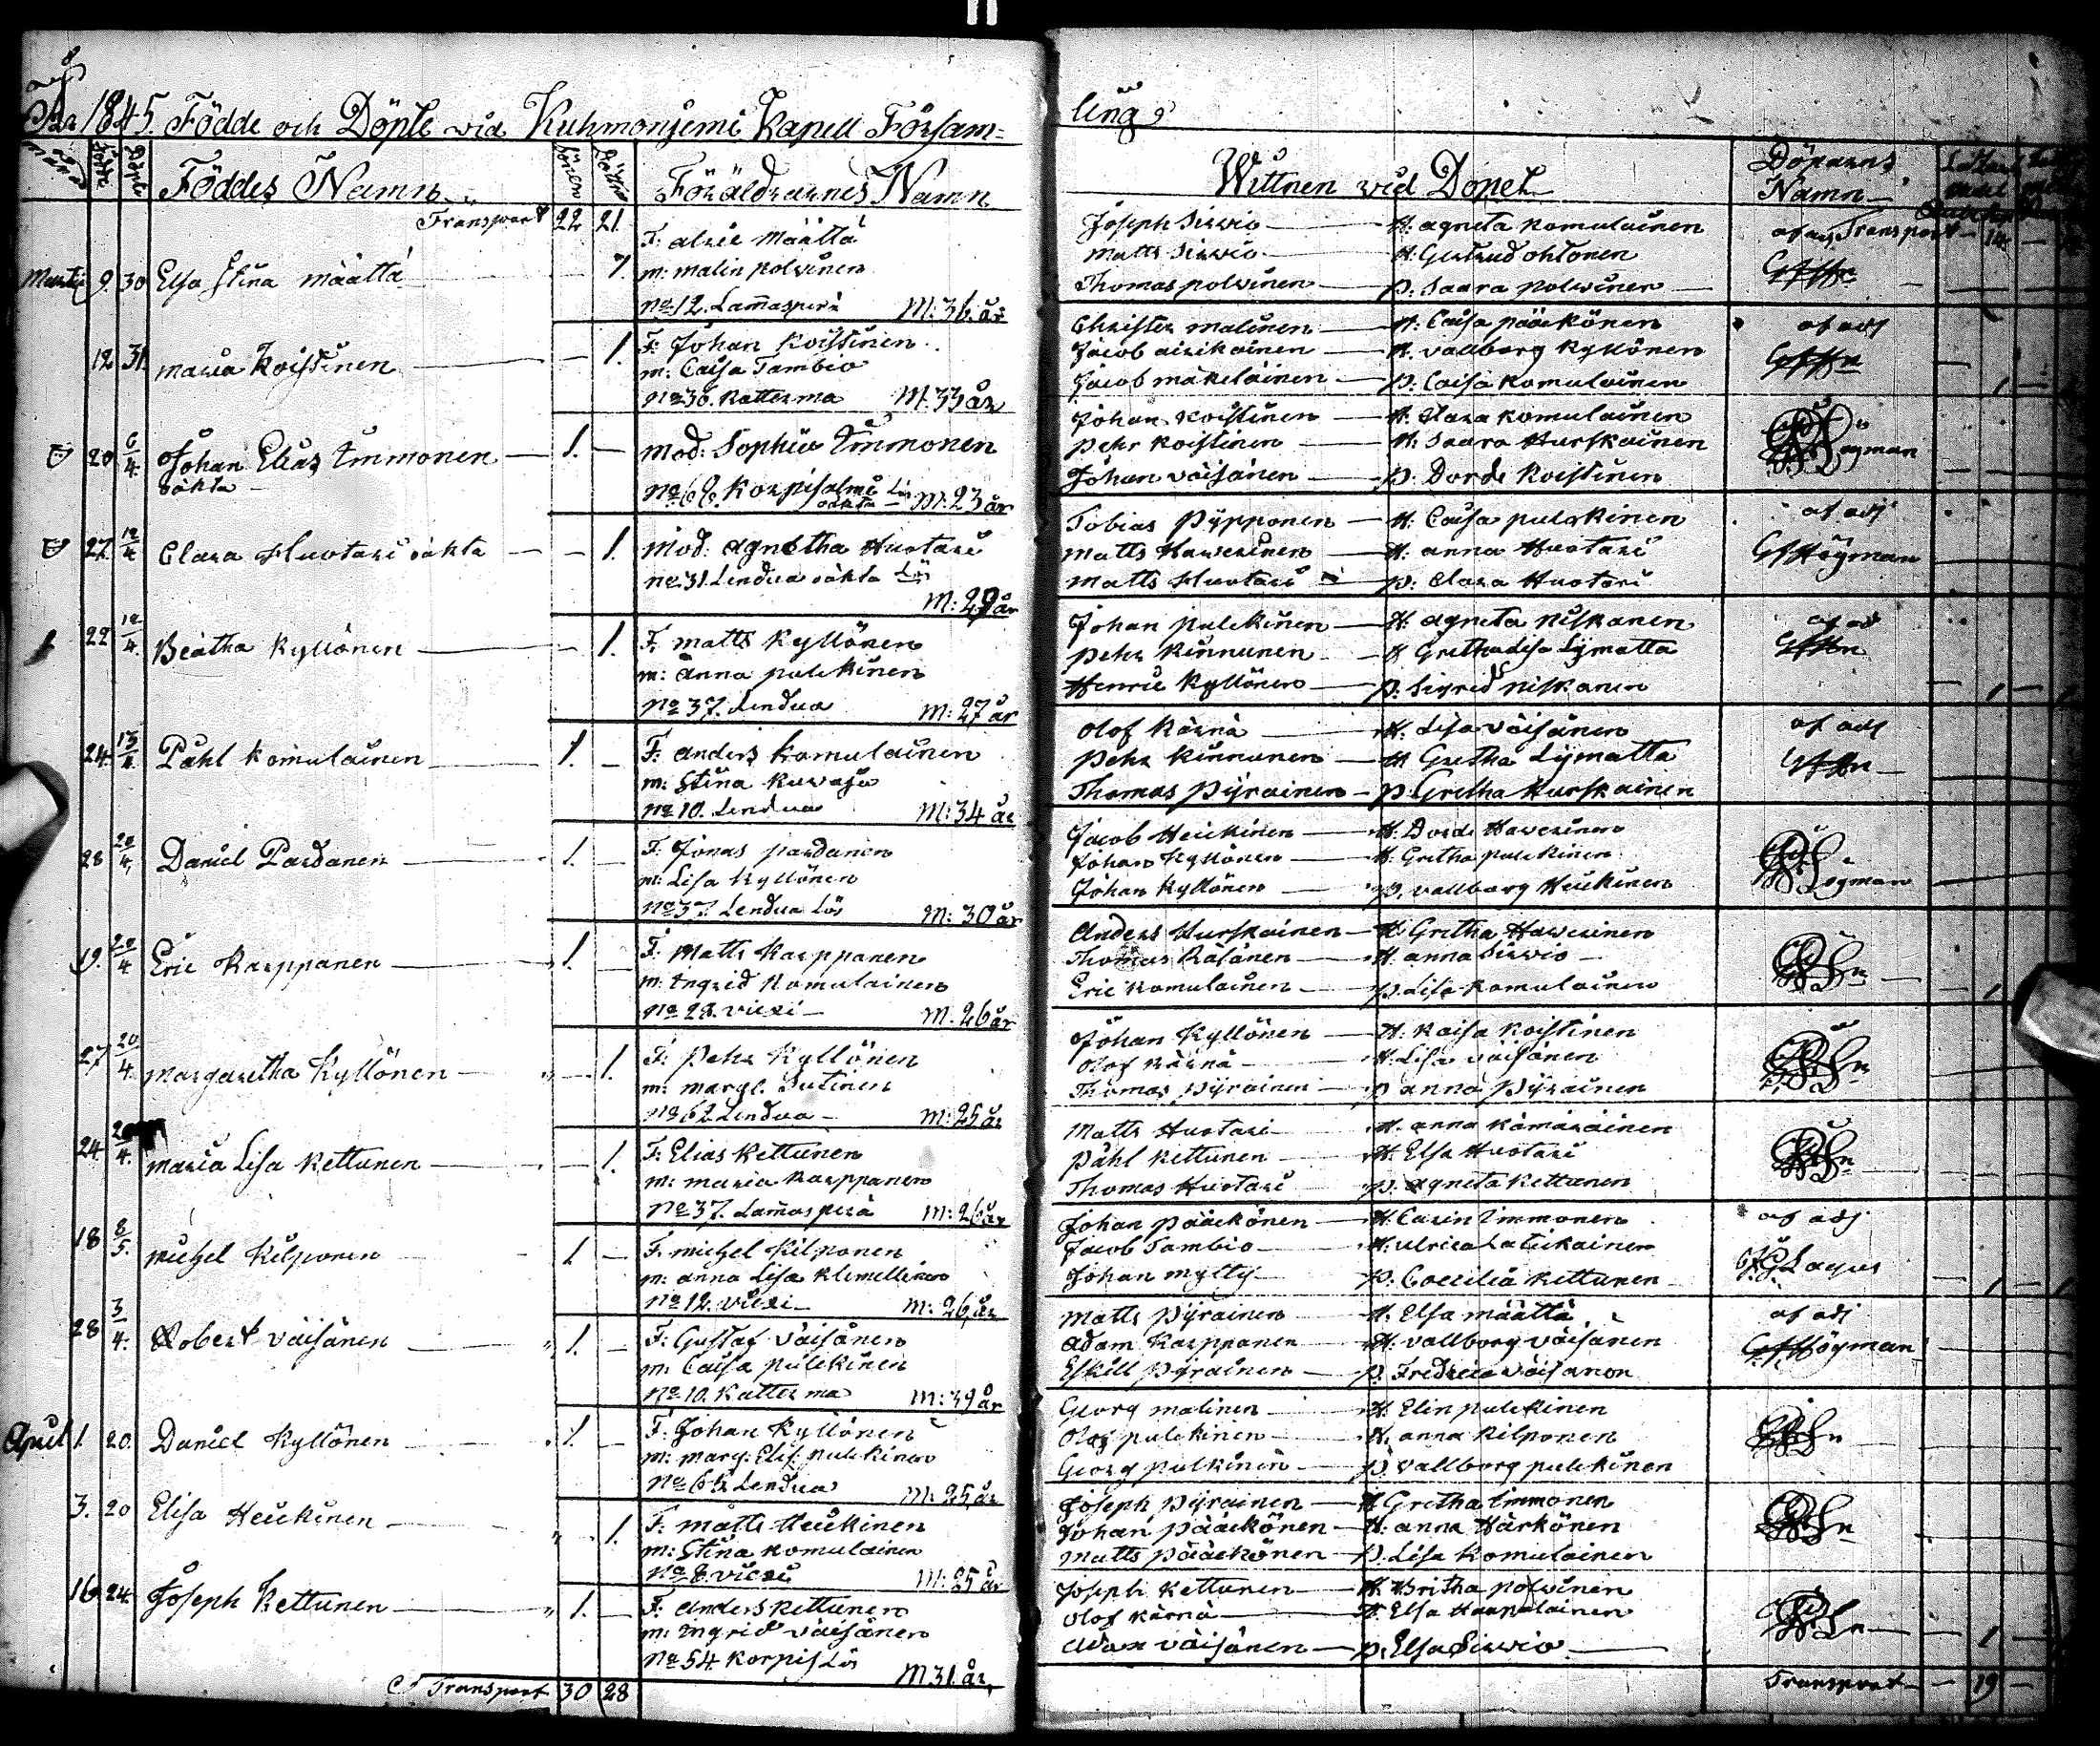 8
År 1845. Födde och Döpte wid Kuhmonjemi Kapell Församling
Månad Födde Döpte Föddes Namn Söner Döttrar Föräldrarnes Namn Wittnen wid Dopet Döparens Namn
Transport 22 21 Transport 14
Martii 9. 30 Elsa Stina Määttä — 1.
F: Alric Määttä
m: Malin Polvinen
No 12. Lam̄asperä M: 36. år
Joseph Sirviö — H: Agneta Komulainen
Matts Sirviö — H: Gertrud Ohtonen
Thomas Polvinen — p: Saara Polvinen
12 31. Maria Koistinen — 1.
F: Johan Koistinen
m: Caisa Tambio
No 36. Katterma M. 33 år
Christer Malinen — H: Caisa Pääkönen
Jacob Airikainen — H. Vallborg Kyllönen
Jacob Mäkeläinen — p. Caisa Komulainen
af adj
20 6/4 Johan Elias Immonen 1. —
oäkta
Mod: Sophia Immonen
Korpisalmi M. 23 år
Johan Koistinen — H. Clara Komulainen
Pehr Koistinen — H: Saara Hurskainen
Johan Väisänen — p. Dorde Koistinen
27. 12/4 Clara Huotari oäkta — 1.
Mod: Agnetha Huotari
No 31. Lendua oäkta
M: 29 år
Tobias Pypponen — H: Caisa Pulkkinen
Matts Haverinen — H: Anna Huotari
Matts Huotari — p: Clara Huotari
af adj
GfHöyman
22 12/4. Beatha Kyllönen — 1.
F. Matts Kyllönen
m: Anna Pulckinen
No 37. Lendua M: 27 år
Johan Pulckinen — H: Agneta Niskanen
Pehr Kinnunen — H Gretha Lisa Lymatta
Henric Kyllönen — p. Sigrid Niskanen
24. 13/4. Påhl Komulainen 1. —
F: Anders Komulainen
m: Stina Kuvaja
No 10. Lendua M: 34 år
Olof Kärnä — H: Lisa Väisänen
Pehr Kinnunen — H Gretha Lymatta
Thomas Pyrainen — p. Gretha Hurskainen
af adj
28 20/4. Daniel Pardanen 1. —
F: Jonas Pardanen
m: Lisa Kyllönen
No 37. Lendua Lös M: 30 år
Jacob Heickinen — H: Dorde Haverinen
Johan Kyllönen — H: Gretha Pulckinen
Johan Kyllönen — p. Vallborg Heickinen
19. 20/4 Eric Karppanen 1. —
F. Matts Karppanen
m: Ingrid Komulainen
No 28. Viexi — M. 26 år
Anders Hurskainen — H: Gretha Haverinen
Thomas Räsänen — H. Anna Sirviö —
Eric Komulainen — p. Lisa Komulainen
27 20/4. Margaretha Kyllönen — 1.
F: Pehr Kyllönen
m: Margt. Sutinen
No 62 Lendua — M: 25 år
Johan Kyllönen — H. Kaisa Koistinen
Olof Kärnä — H. Lisa Väisänen
Thomas Pyrainen — p Anna Pyrainen
24 20/4. Maria Lisa Kettunen — 1.
F: Elias Kettunen
m: Maria Karppanen
No 37. Lam̄asperä M: 26 år
Matts Huotari — H. Anna Kämäräinen
Påhl Kettunen — H. Elsa Huotari
Thomas Huotari — p. Agneta Kettunen
18 8/5. Michel Kilponen 1. —
F. Michel Kilponen
m: Anna Lisa Klemettinen
No 12. Viexi — M: 26 år
Johan Pääckönen — H. Carin Immonen
Jacob Tambio — H: Ulrica Latikainen
Johan Mylly — p. Coecilia Kettunen
af adj
Lagus
28 3/4. Robert Väisänen 1. —
F: Gustaf Väisänen
m: Caisa Pulckinen
No 10. Katterma M: 39 år
Matts Pyrainen — H. Elsa Määttä
Adam Karppanen — H. Vallborg Väisänen
Eskill Pyrainen — p. Fredrica Väisänen
af adj
GfHöyman
April 1. 20. Daniel Kyllönen 1. —
F: Johan Kyllönen
m: Marg: Elis: Pulckinen
No 65. Lendua M: 25 år
Georg Malinen — H. Elin Pulckinen
Olof Pulckinen — H. Anna Kilponen
Georg Pulkinen — p. Vallborg Pulckinen
3. 20 Elisa Heickinen — 1.
F: Matts Heickinen
m: Stina Komulainen
No 8. Viexi M: 25 år
Joseph Pyrainen — H Gretha Immonen
Johan Pääckönen — H: Anna Härkönen
Matts Pääckönen — p. Lisa Komulainen
16 24. Joseph Kettunen 1. —
F: Anders Kettunen
m: Ingrid Väisänen
No 54. Korpis Lös M 31. år,
Joseph Kettunen — H. Britha Polvinen
Olof Kärnä — H. Elsa Haapalainen
Adam Väisänen — p. Elsa Sirviö
Transport 30 28 Transport — 19 —